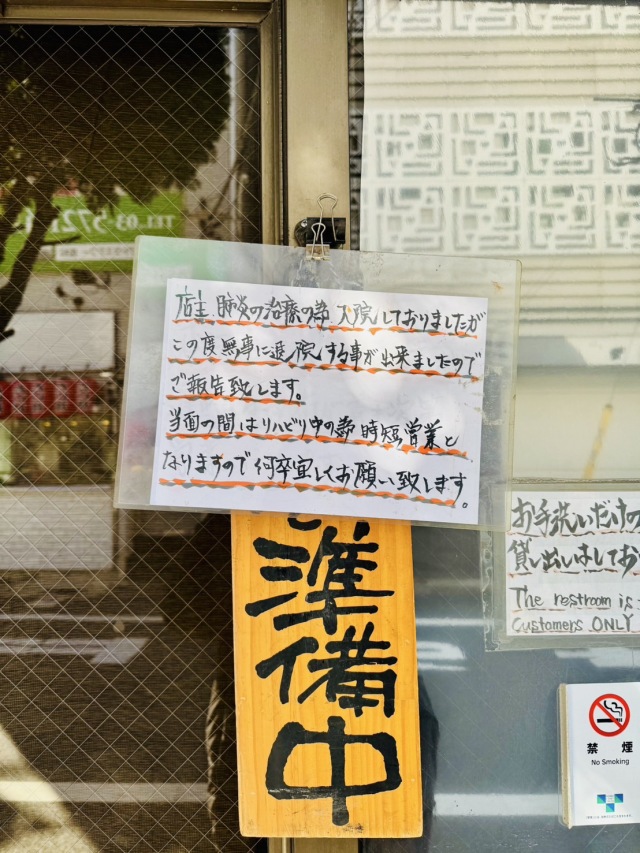 店主 肺炎の治療の為 入院しておりましたが
この度無事に退院する事が出来ましたので
ご報告致します。
当面の間はリハビリ中の為 時短営業と
なりますので何卒宜しくお願い致します。
準備中
お手洗いだけの
貸し出しはしてお
The restroom is
Customers ONLY
禁煙
No Smoking
TEL 03-572